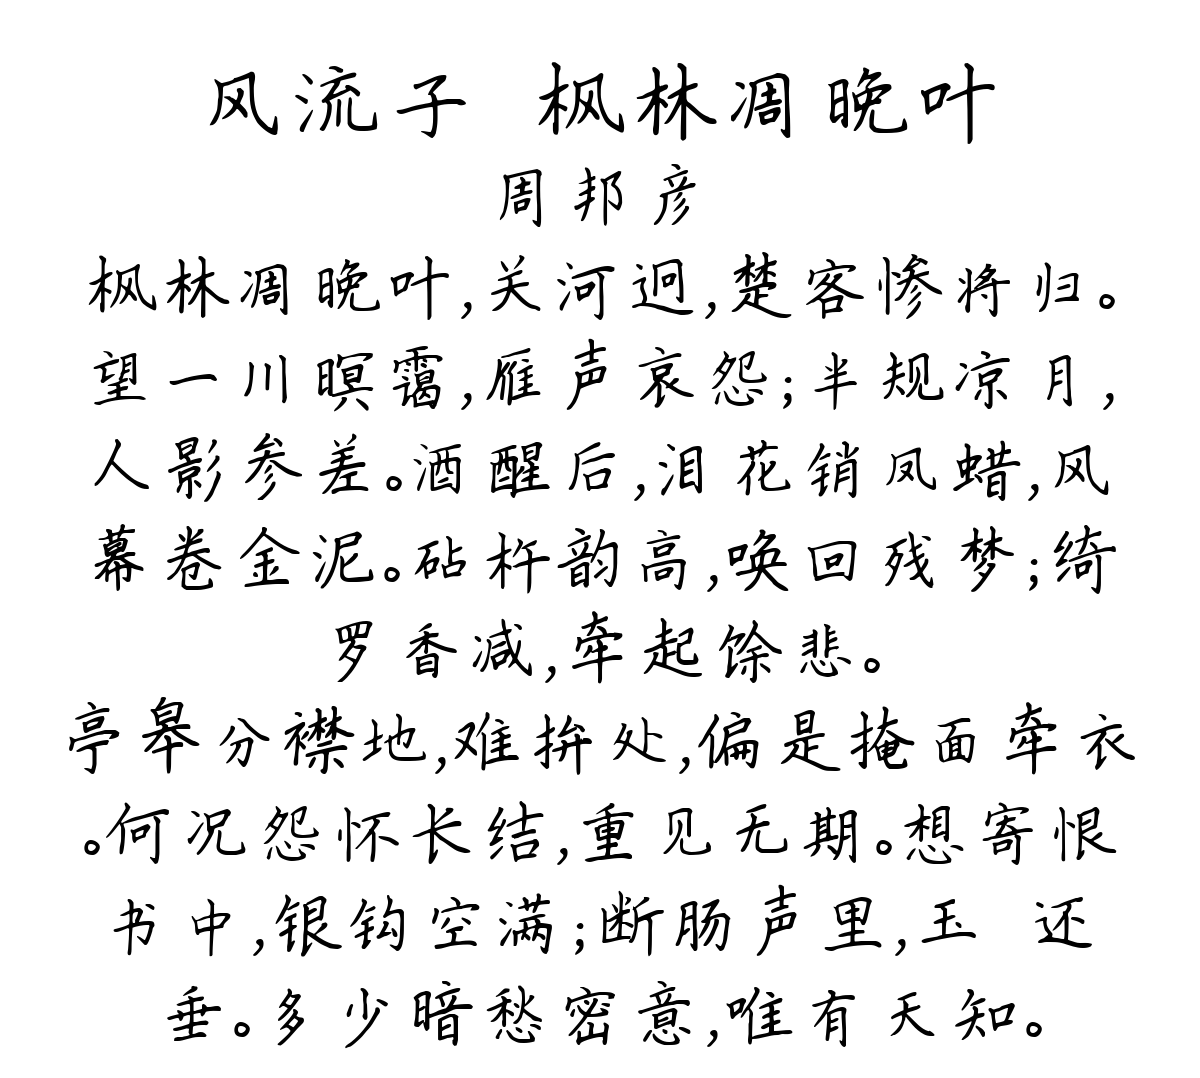 风流子 枫林凋晚叶
周邦彦
枫林凋晚叶,关河迥,楚客惨将归。
望一川暝霭,雁声哀怨;半规凉月,
人影参差。酒醒后,泪花销凤蜡,风
幕卷金泥。砧杵韵高,唤回残梦;绮
罗香减,牵起馀悲。
亭皋分襟地,难拚处,偏是掩面牵衣
。何况怨怀长结,重见无期。想寄恨
书中,银钩空满;断肠声里,玉 还
垂。多少暗愁密意,唯有天知。